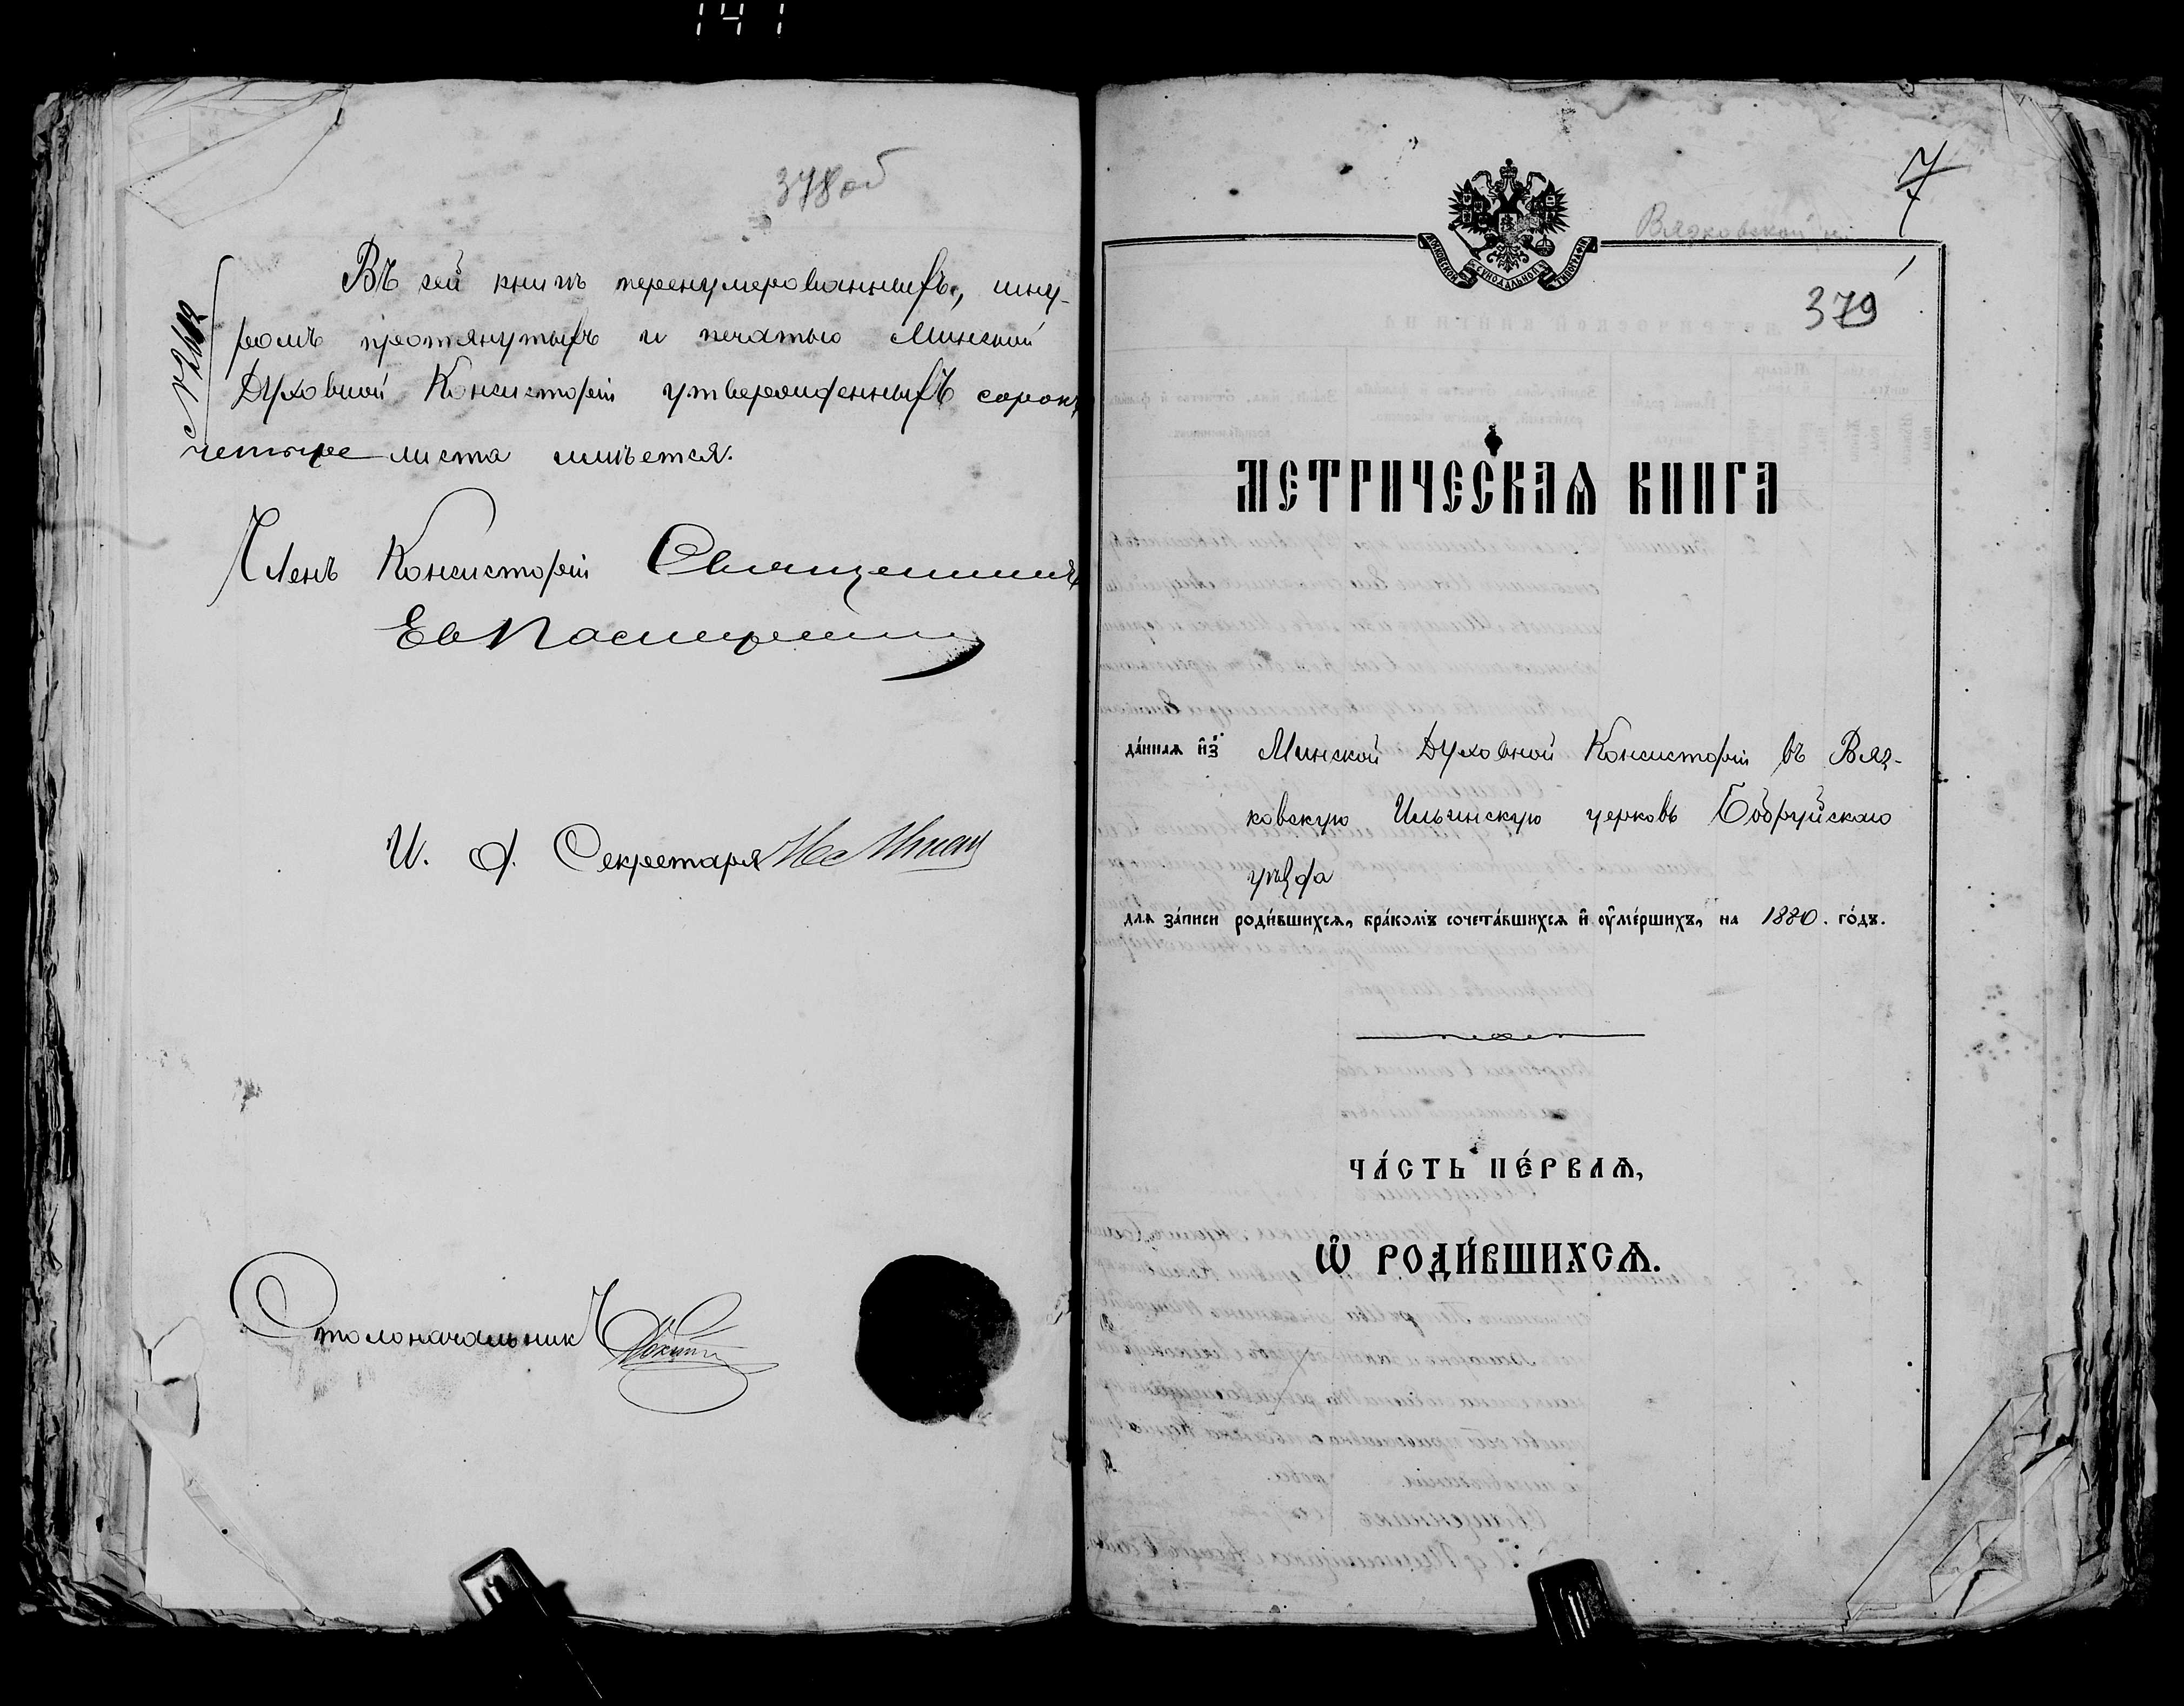 141
378об
Въ сей книгѣ перенумерованныхъ, шну-
ромъ протянутыхъ и печатью Минской
Духовной Консисторіи утвержденныхъ сорокъ
четыре листа имѣется.
Членъ Консисторіи Священникъ
И. д. Секретаря
Столоначальникъ
7
Вязковской ц.
МОСКОВСКОЙ СѴНОДАЛЬНОЙ ТИПОГРАФІИ
379
МЕТРИЧЕСКАѦ КНИГА
да́ннаѧ и҆з̾ Минской Духовной Консисторіи въ Вяз-
ковскую Ильинскую церковь Бобруйскаго
уѣзда
длѧ за́писи роди́вшихсѧ, бра́комъ сочета́вшихсѧ и҆ ѹ҆ме́ршихъ, на 1880. го́дъ.
ЧА́СТЬ ПЕ́РВАѦ,
Ѽ РОДИ́ВШИХСѦ.